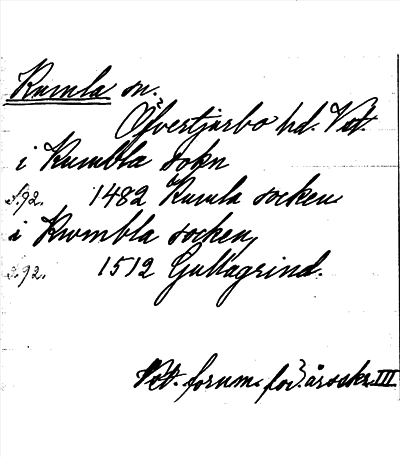 Kumla sn.
Öfvertjurbo hd. Vstl.
i Kumbla sokn
S. 92. 1482 Kumla socken
i Kwmbla socken,
S. 92. 1512 Gullagrind.
Vstl. fornm. för. årsskr. III